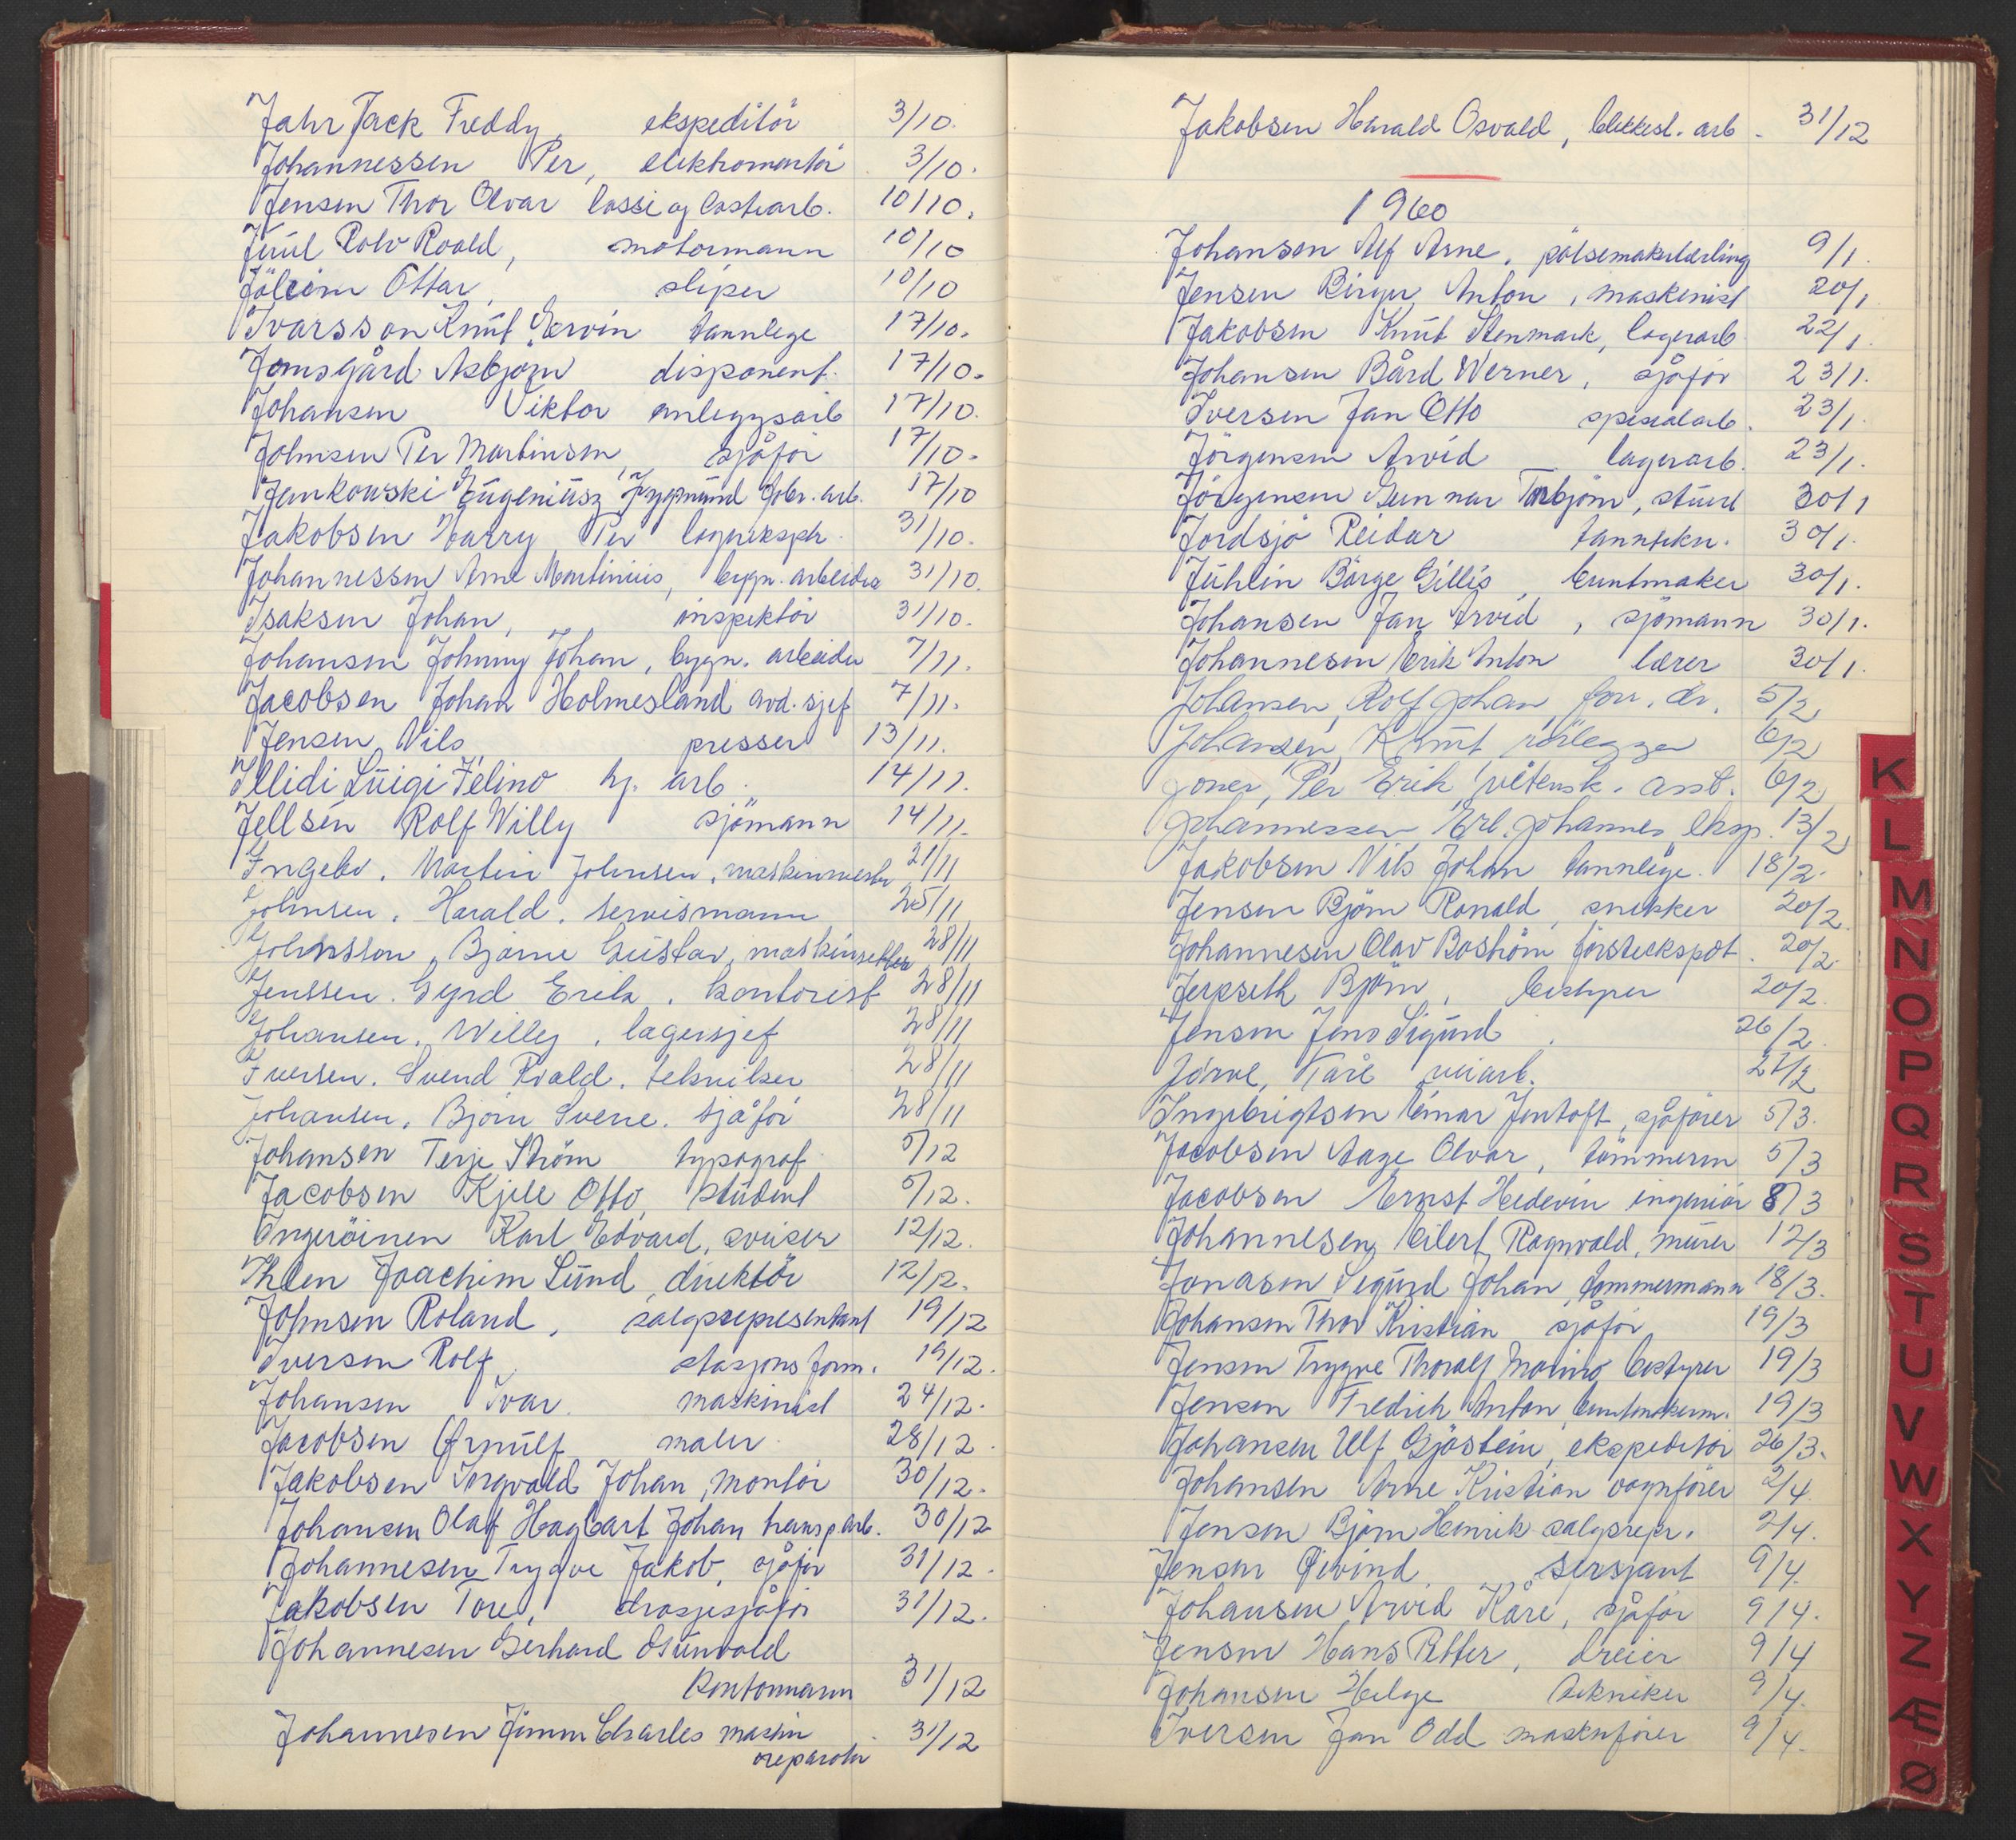 Jahr Jack Freddy, ekspeditör 3/10.
Johannessen Per, elektromontör 3/10.
Jensen Thor Olvar losse og lastearb. 10/10.
Juul Rolv Roald, motormann 10/10
Jöleim Ottar, sliper 10/10
Ivarsson Knut Ervin tannlege 17/10.
Jomsgård Asbjørn disponent. 17/10.
Johansen Viktor anleggsarb 17/10.
Johnsen Per Martinsen, sjåför 17/10.
Jankowski Eugeniusz Zygmund fabr. arb. 17/10
Jakobsen Harry Per lagereksp. 31/10.
Johannessen Arne Martinius, bygn. arbeider 31/10.
Isaksen Johan, inspektör 31/10.
Johansen Johnny Johan, bygn. arbeider 7/11.
Jacobsen Johan Holmesland avd. sjef 7/11.
Jensen Nils, presser 13/11.
Illidi Luigi Felino hj. arb. 14/11.
Jellsén Rolf Willy sjömann 14/11.
Ingebr. Martin Johnsen, maskinmester 21/11
Johnsen, Harald, servismann 25/11
Johnsson, Bjarne Gustav, maskinsetter 28/11
Jenssen. Gyrd Erik, kontorist 28/11
Johansen, Willy, lagersjef 28/11
Iversen. Svend Roald. tekniker 28/11
Johansen, Björn Sverre. sjåför 28/11
Johansen Terje Ström typograf 5/12
Jacobsen Kjell Otto, student 5/12.
Ingeröinen Karl Edvard, sveiser 12/12.
Ihlen Joachim Lund, direktör 12/12.
Johnsen Roland, salgsrepresentant 19/12
Iversen Rolf, stasjons form. 19/12.
Johansen Ivar. maskinist 24/12.
Jacobsen Ørnulf maler 28/12.
Jakobsen Torgvald Johan, montör 30/12.
Johansen Olaf Hagbart Johan transp.arb. 30/12
Johannesen Trygve Jakob, sjåför 31/12.
Jakobsen Tore, drosjesjåför 31/12.
Johannesen Gerhard Osunvold
Kontormann 31/12
Johannesen Jimm Charles maskin 31/12
reparatör
Jakobsen Harald Osvald, blikkesl. arb. 31/12
1960
Johansen Alf Arne, pölsemakerlærling 9/1.
Jensen Birger Anton, maskinist 20/1.
Jakobsen Knut Stenmark, lagerarb 22/1.
Johansen Bård Werner, sjåför 23/1.
Iversen Jan Otto spesialarb. 23/1.
Jörgensen Arvid lagerarb. 23/1.
Jörgensen Gunnar Torbjörn, stuert 30/1
Jordsjö Reidar tanntekn. 30/1.
Juhlin Börge Gillis, buntmaker 30/1.
Johansen Jan Arvid, sjömann 30/1.
Johannesen Erik Anton lærer 30/1.
Johansen, Rolf Johan, forr. dr. 5/2
Johansen, Knut rörlegger 6/2
Joner, Per Erik vitensk. asst. 6/2
Johannessen, Erl. Johannes, eksp. 13/2
Jakobsen Nils Johan tannlege. 18/2.
Jensen Björn Ronald, snekker 20/2.
Johannesen Olav Boström försteekspdt. 20/2.
Jerpseth Björn, bestyrer 20/2.
Jensen Jens Sigurd. 26/2.
Jörve, Kåre veiarb. 27/2
Ingebrigtsen Einar Jentoft, sjåförer 5/3.
Jacobsen Aage Olvar, tömmerm 5/3
Jacobsen Ernst Hedevin ingeniör 8/3
Johannesen, Eilert Ragnvald, murer 12/3
Jonasen Sigurd Johan, tømmermann 18/3.
Johansen Thor Kristian sjåför 19/3
Jensen Trygve Thoralf Moring bestyrer 19/3
Jensen Fredrik Anton, buntmakerm. 19/3
Johansen Ulf Gjöstein, ekspeditör 26/3.
Johansen Arne Kristian vognförer 2/4.
Jensen Björn Henrik salgsrepr. 2/4.
Jensen Øivind sersjant 9/4.
Johansen Arvid Kåre, sjåför 9/4.
Jensen Hans Petter, dreier 9/4
Johansen Helge tekniker 9/4.
Iversen Jan Odd maskinförer 9/4.
K
L
M
N
O
P
Q
R
S
T
U
V
W
X
Y
Z
Æ
Ø